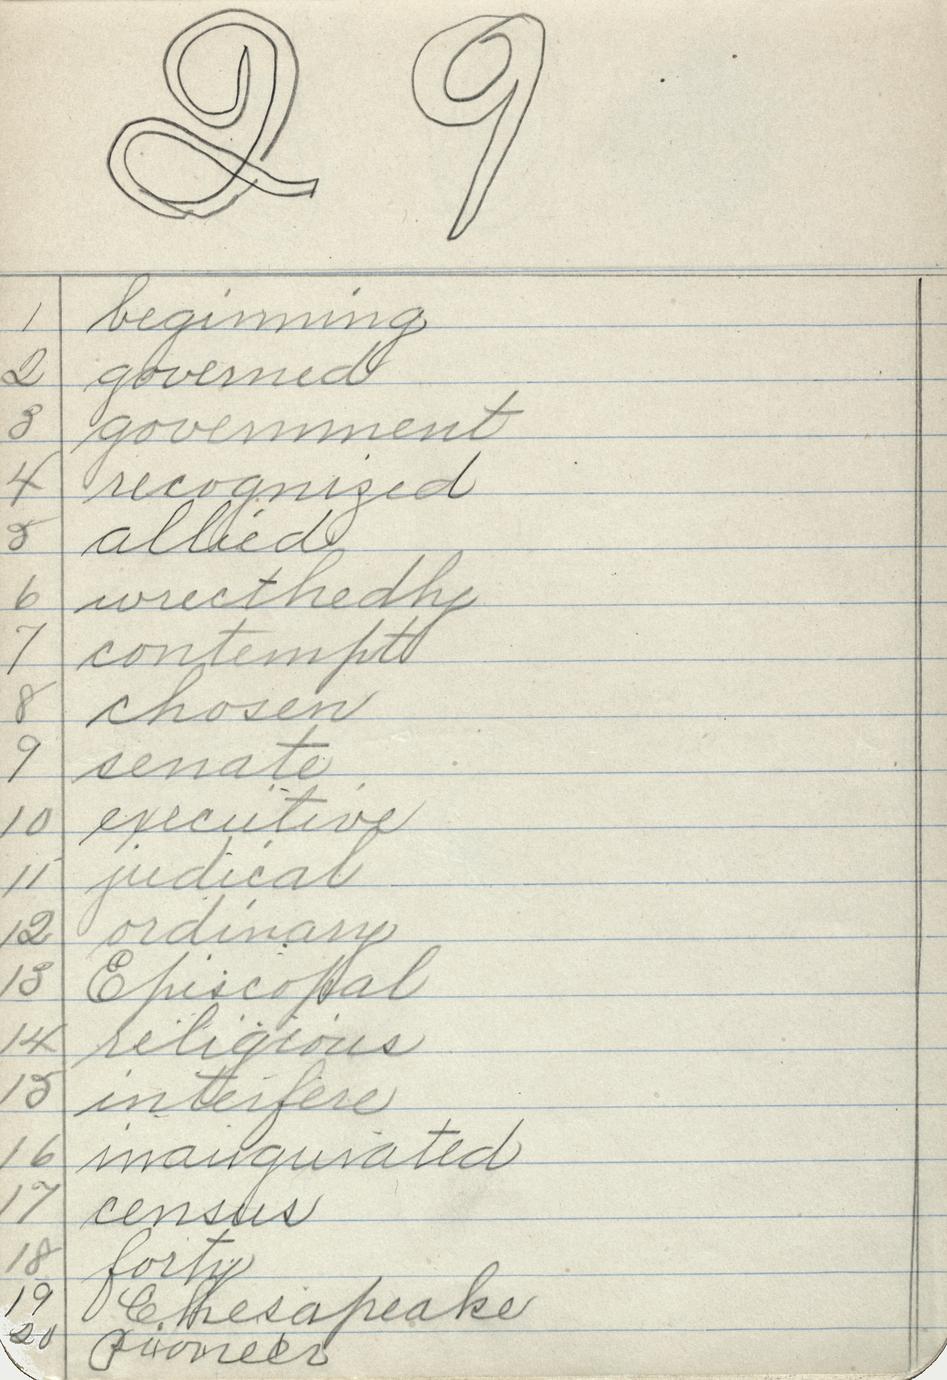 29
1 beginning
2 governed
3 government
4 recognized
5 allied
6 wrecthedly
7 contempt
8 chosen
9 senate
10 executive
11 judical
12 ordinary
13 Episcopal
14 religious
15 interfere
16 inaugurated
17 census
18 forty
19 Chesapeake
20 Pioneer